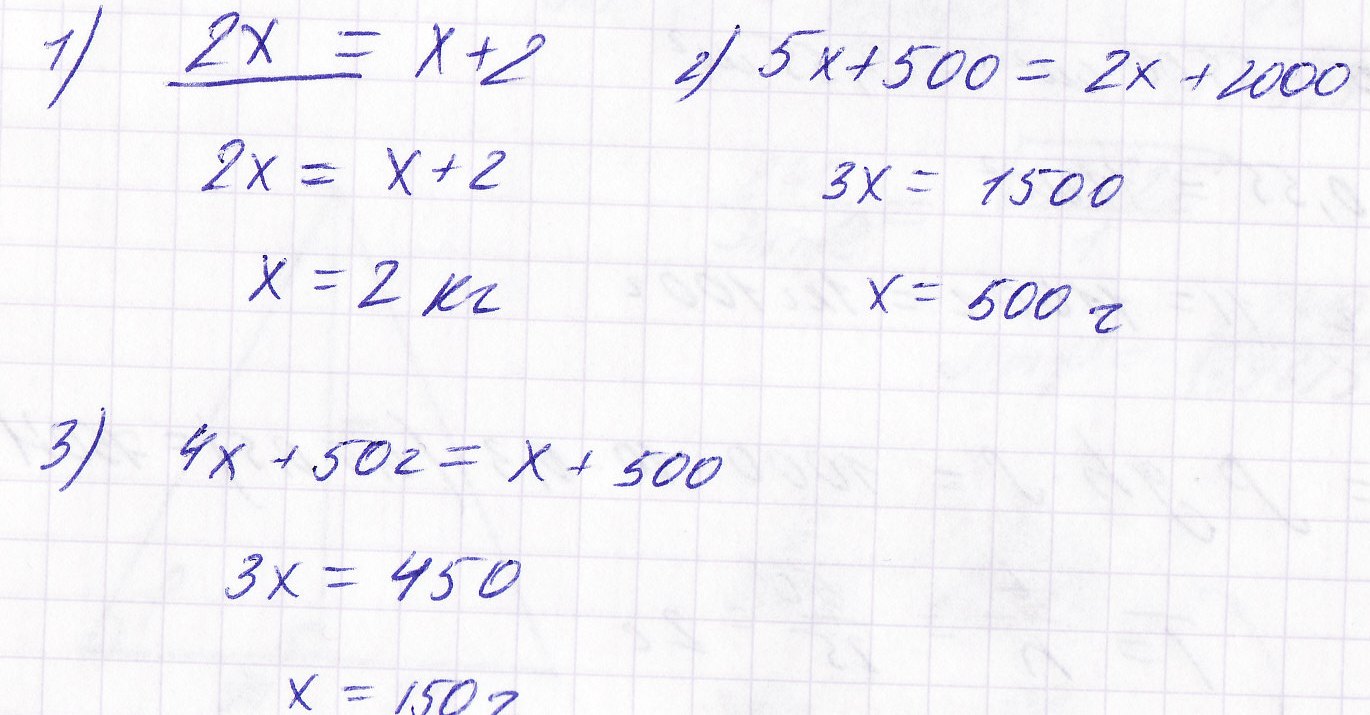 1) 2x = x+2
2x = x+2
x = 2 кг
2) 5x+500 = 2x+2000
3x = 1500
x = 500 г
3) 4x+50г = x+500
3x = 450
x = 150г